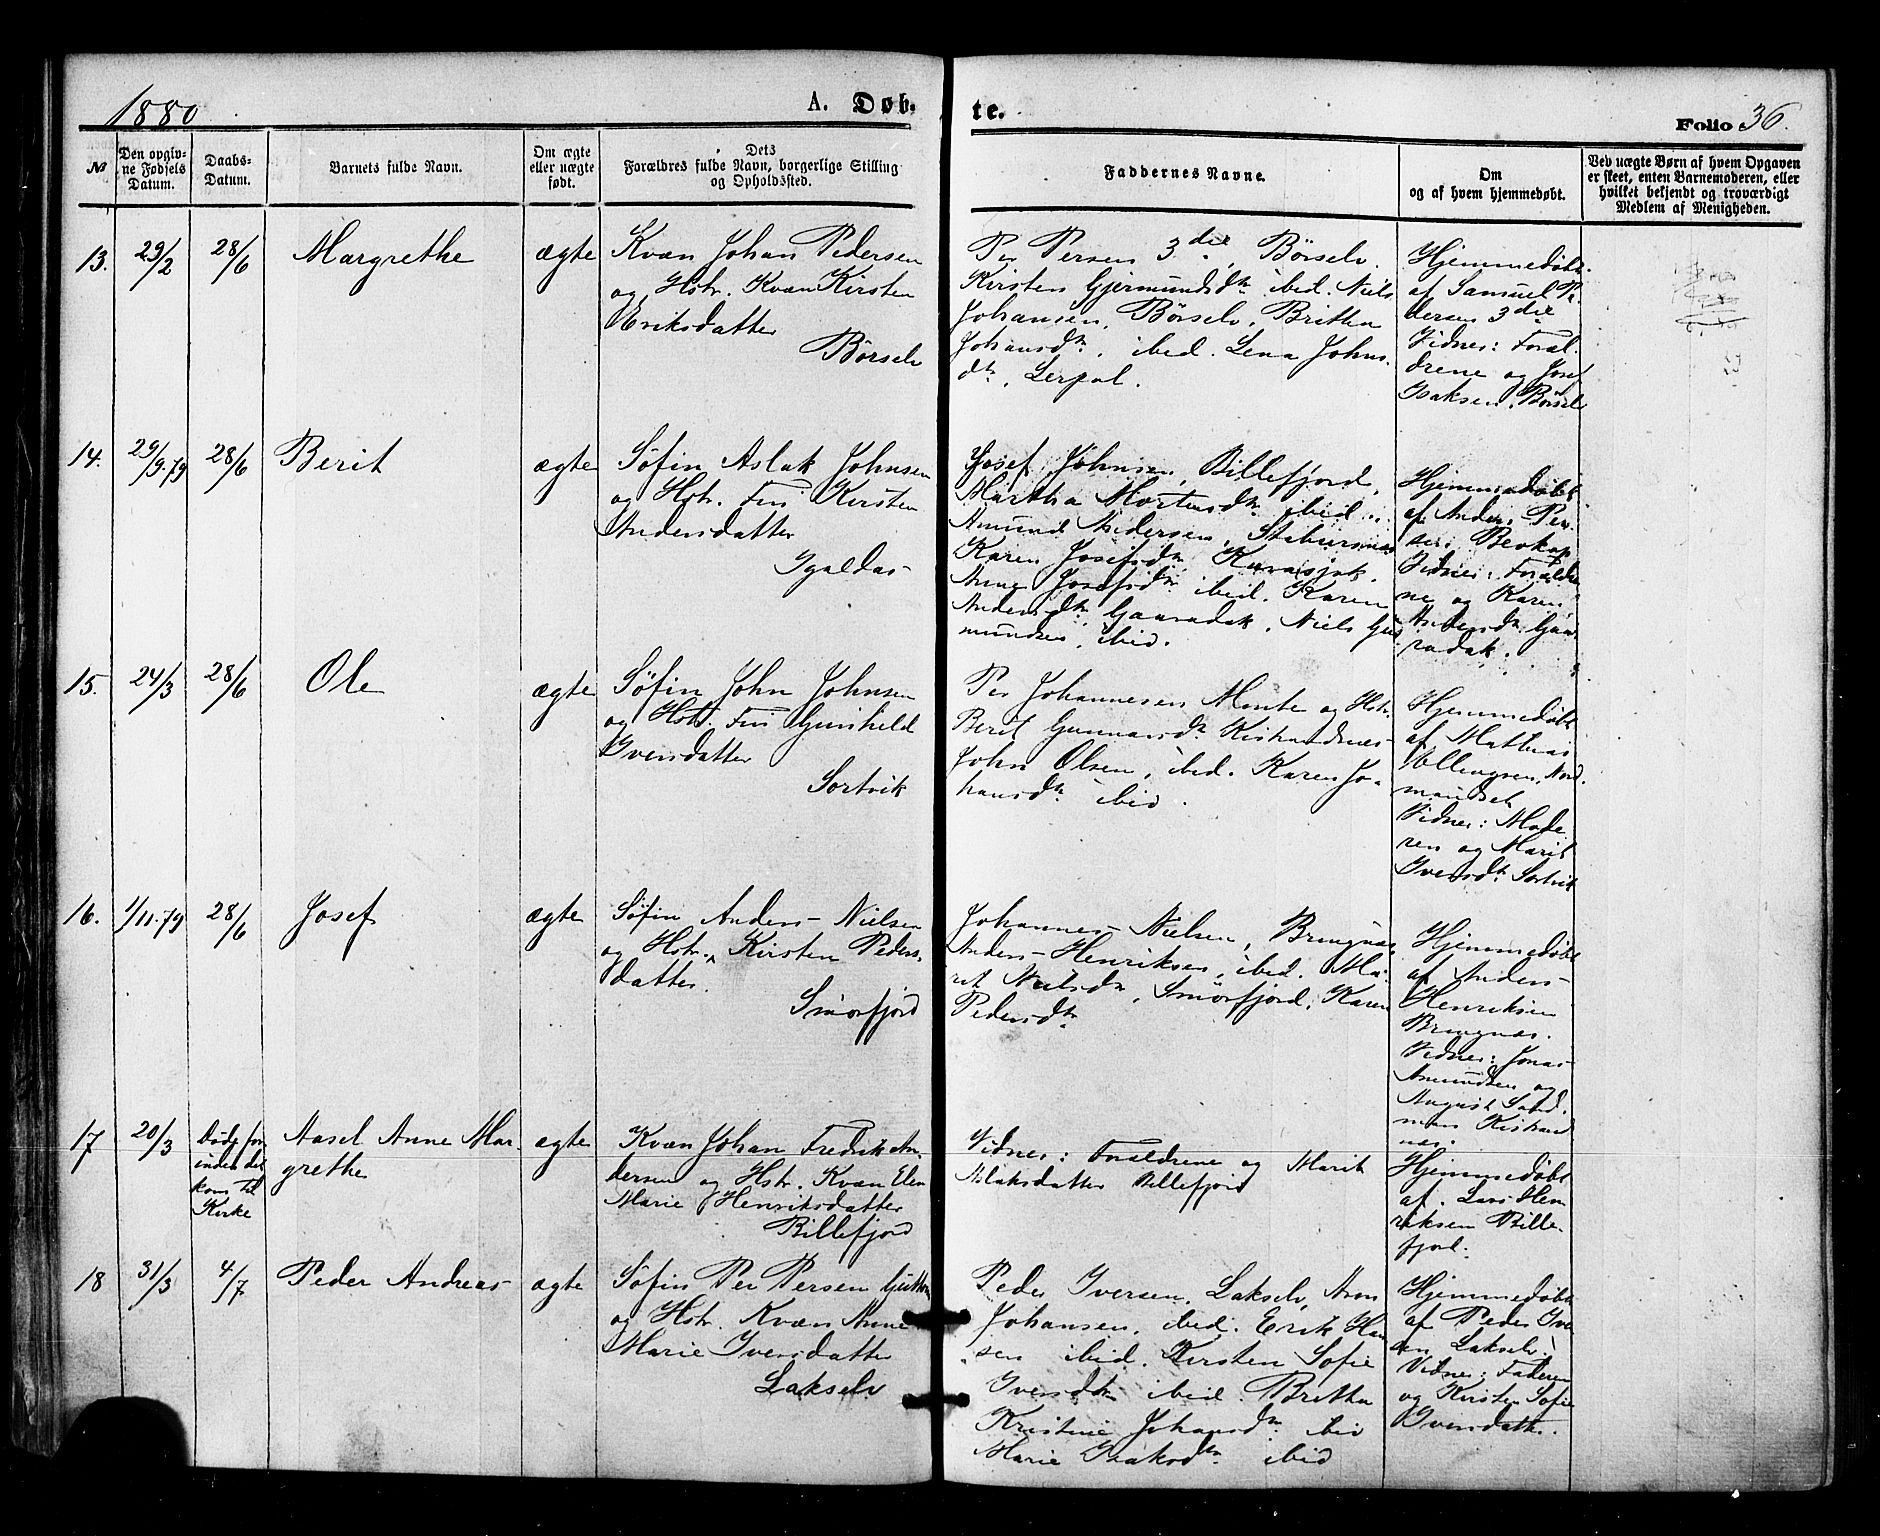 1880
A. Døb-
te.
Folio 36.
№
Den opgiv-
ne Fødsels
Datum.
Daabs-
Datum.
Barnets fulde Navn.
Om ægte
eller uægte
født.
Dets
Forældres fulde Navn, borgerlige Stilling
og Opholdssted.
Faddernes Navne.
Om
og af hvem hjemmedøbt.
Ved uægte Børn af hvem Opgaven
er skeet, enten Barnemoderen, eller
hvilket bekjendt og troværdigt
Medlem af Menigheden.
13.
29/2
28/6
Margrethe
ægte
Kvæn Johan Pedersen
og Hstr. Kvæn Kirsten
Eriksdatter
Börselv
Per Persen 3die, Börselv.
Kirsten Gjermundsdtr ibid. Niels
Johansen, Börselv, Britha
Johansdtr, ibid. Lena Johns-
dtr, Lerpol.
Hjemmedøbt
af Samuel Pe
dersen 3die
Vidner: Foræl-
drene og Josef
Isaksen, Börselv
14.
29/9.79
28/6
Berit
ægte
Søfin Aslak Johnsen
og Hstr. Fin Kirsten
Andersdatter
Igaldas
Josef Johnsen, Billefjord,
Martha Mortensdtr ibid.
Amund Andersen, Stabursnæs
Karen Josefsdtr, Karasjok.
Anne Josefsdtr ibid. Karen
Andersdtr, Gaaradak, Niels Gut
mundsen, ibid.
Hjemmedøbt
af Anders Per
sen Bevkop
Vidner: Foræld
ne og Karen
Andersdtr Gaa
radak.
15.
24/3
28/6
Ole
ægte
Søfin John Johnsen
og Hstr. Fin Gunhild
Iversdatter
Sortvik
Per Johannesen Monte og Hstr.
Berit Gunnarsdtr Kistrandnæs
John Olsen, ibid. Karen Jo-
hansdtr ibid.
Hjemmedøbt
af Mathias
Ellingsen, Nord-
mandset
Vidner: Mode-
ren og Marit
Iversdtr Sortvik
16.
1/11.79
28/6
Josef
ægte
Søfin Anders Nielsen
og Hstr. Kirsten Peders-
datter.
Smörfjord
Johannes Nielsen, Bringnæs
Anders Henriksen, ibid. Ma-
rit Nielsdtr, Smörfjord, Karen
Pedersdtr
Hjemmedøbt
af Anders
Henriksen
Bringnæs.
Vidner: Jonas
Amundsen og
August Sand-
man Kistrand
næs.
17
20/3
Døde for
inden det
kom til
Kirke
Aasel Anne Mar-
grethe
ægte
Kvæn Johan Fredrik An-
dersen og Hstr. Kvæn Elen
Marie Henriksdatter
Billefjord
Vidner: Forældrene og Marit
Aslaksdatter Billefjord
Hjemmedøbt
af Lars Hen
riksen Bille-
fjord.
18
31/3
4/7
Peder Andreas
ægte
Søfin Per Persen
og Hstr. Kvæn Anne
Marie Iversdatter
Lakselv
Peder Iversen, Lakselv, Aron
Johansen, ibid. Erik Han
sen ibid. Kirsten Sofie
Iversdtr ibid. Britha
Kristine Johansdtr ibid
Marie Isaksdtr ibid
Hjemmedøbt
af Peder Iver
sen Lakselv.
Vidner: Faderen
og Kirsten Sofie
Iversdatter.